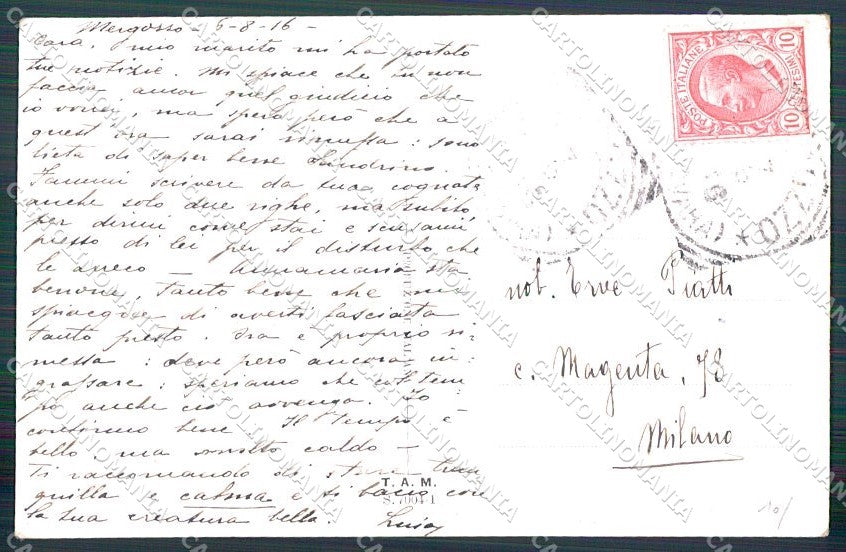 Mergozzo - 6-8-16 -
Cara, mio marito mi ha portato
tue notizie. Mi spiace che tu non
faccia ancor quel giudizio che
io vorrei, ma spero però che a
quest'ora sarai rimessa: sono
lieta di saper bene Sandrino.
Fammi scrivere da tua cognata
anche solo due righe, ma subito,
per dirmi come stai e scusami
presso di lei per il disturbo che
le arreco - Annamaria sta
benone, tanto bene che mi
spiace di averti lasciata
tanto presto. Ora è proprio ri-
messa: deve però ancora in-
grassare: speriamo che col tem
po anche ciò avvenga. Io
continuo bene. Il tempo è
bello, ma molto caldo -
Ti raccomando di stare tran
quilla e calma e ti bacio con
la tua creatura bella. Luisa
POSTE ITALIANE
10
10
CENTESIMI
not. Erve Piatti
c. Magenta, 78
Milano
T. A. M.
10/
CARTOLINOMANIA